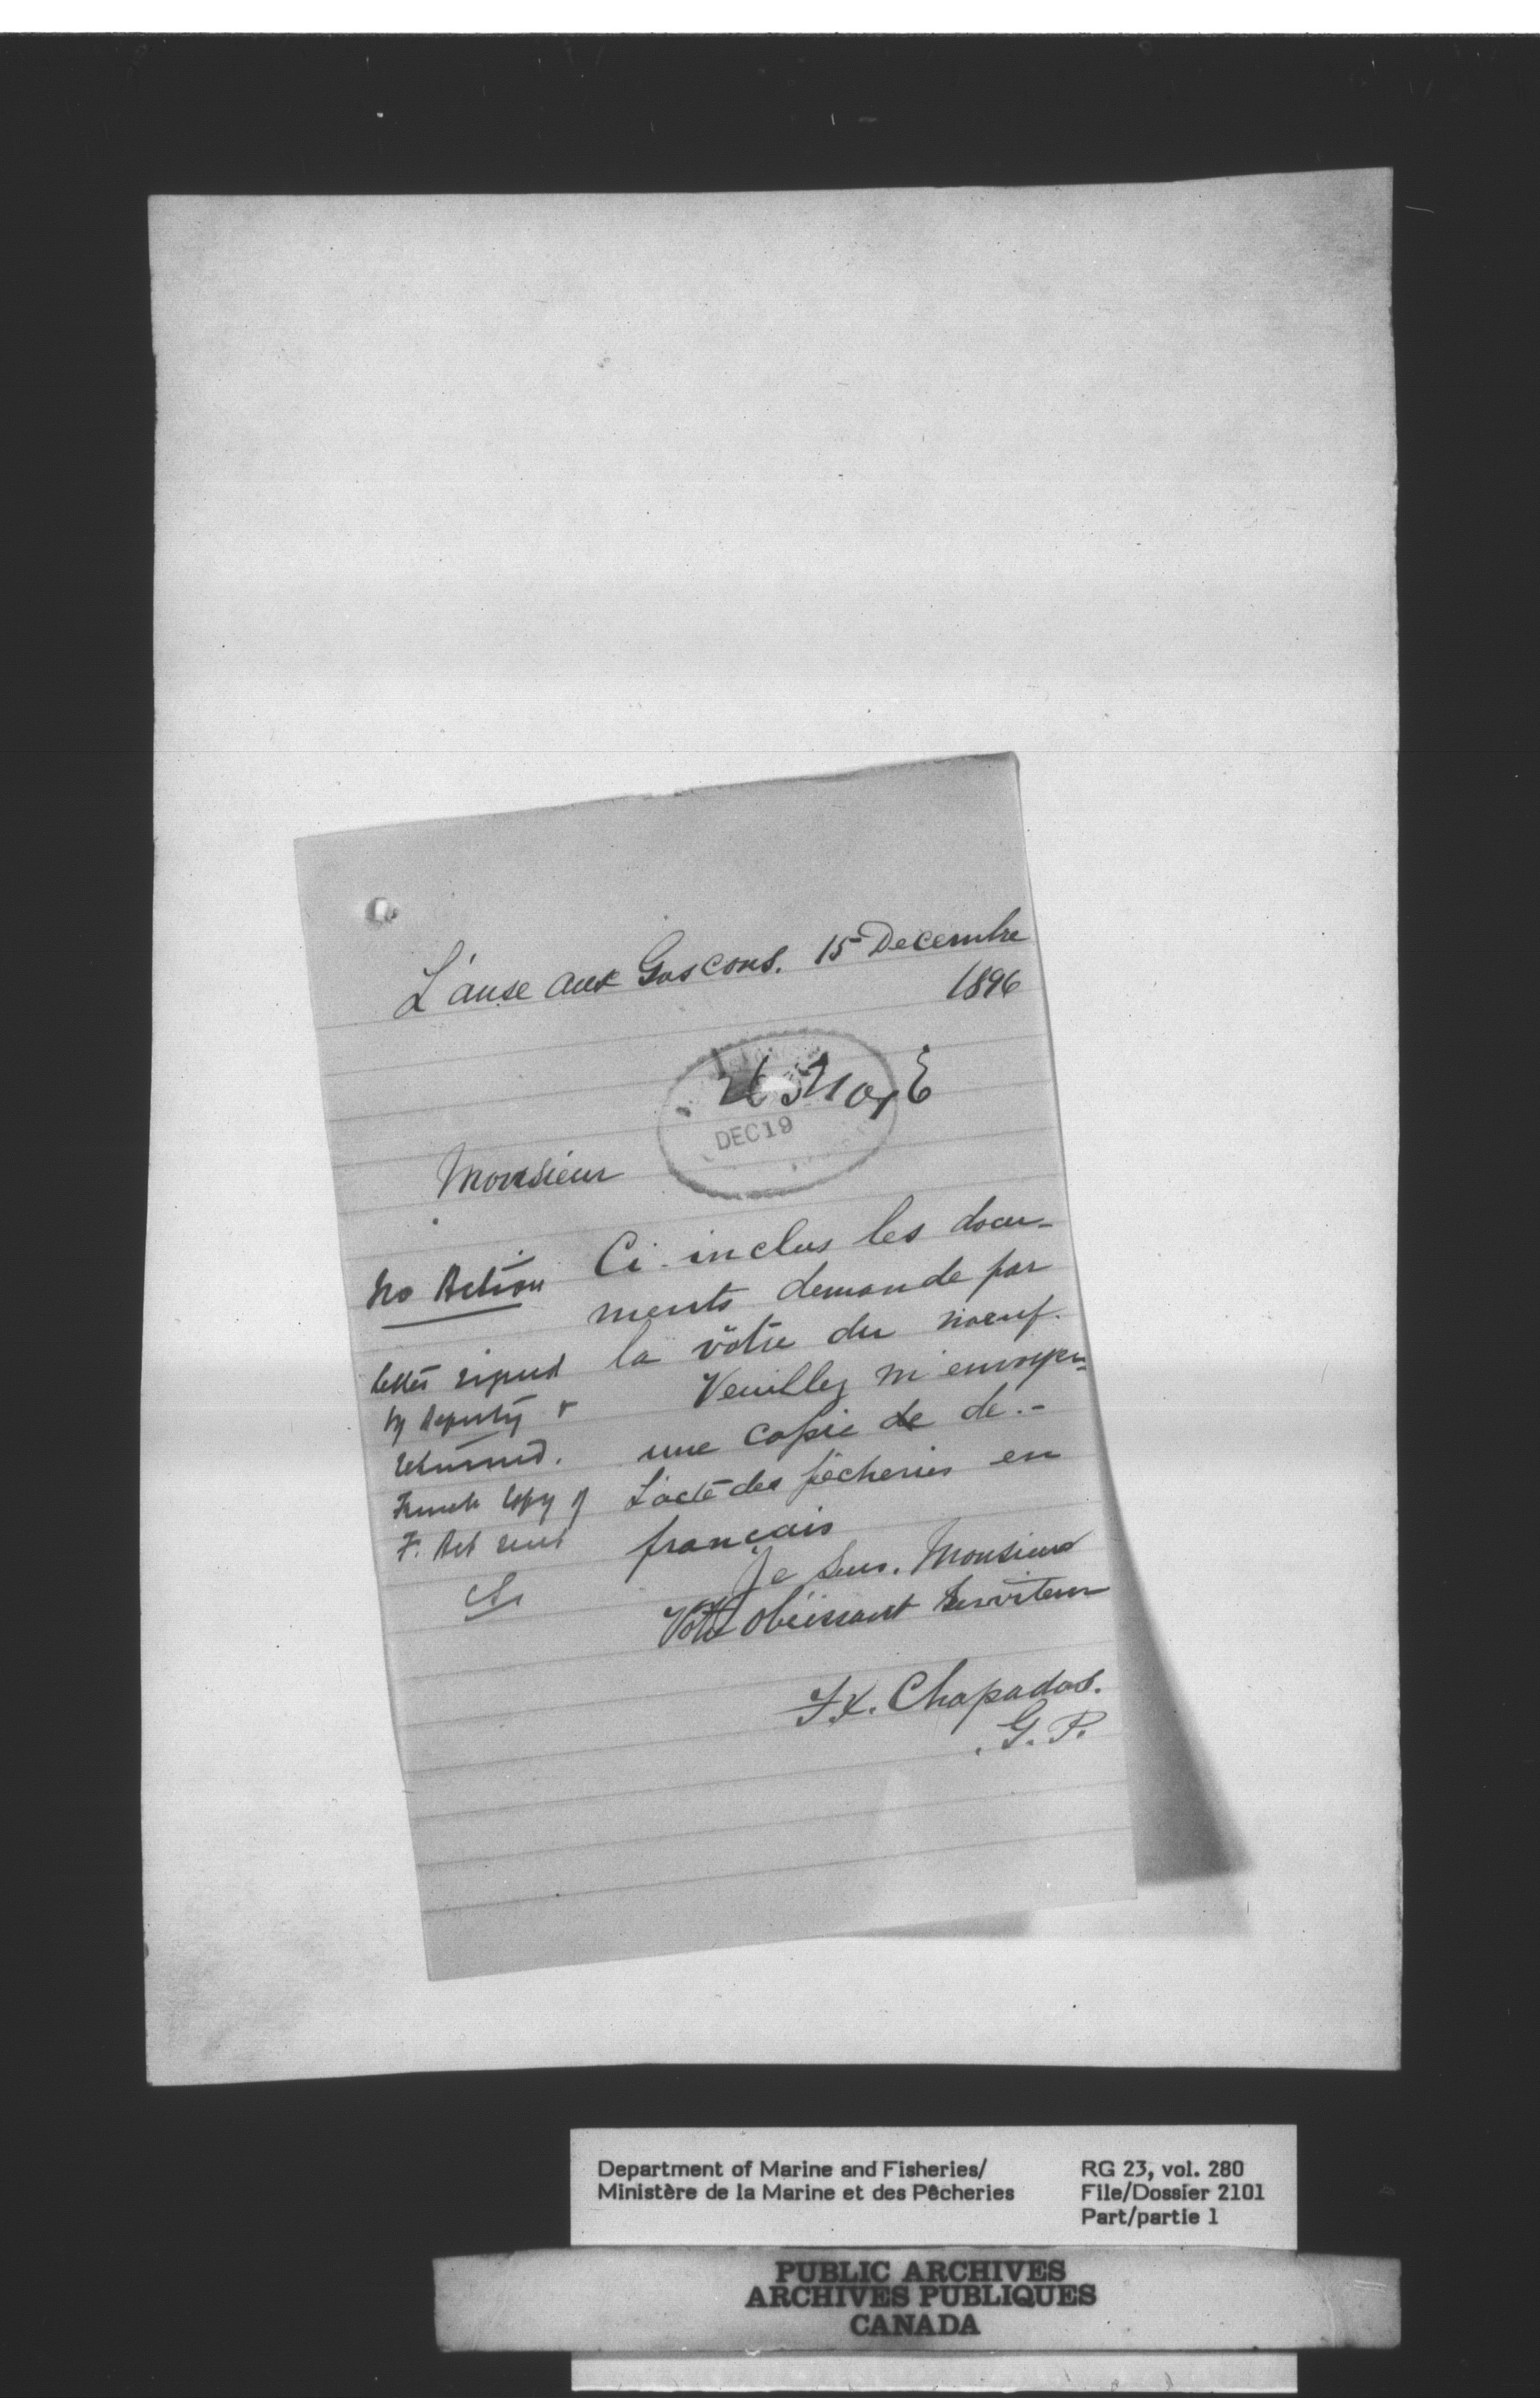 L'anse aux Gascons. 15 Decembre
1896
DEC 19
Monsieur
Ci-inclus les docu-
ments demande par
la vôtre du noeuf.
Veuillez m'envoyer
une copie de de.-
L'acte des pecheries en
francais
Je suis. Monsieur
Votre obeissant Serviteur
F.X. Chapados.
.G. P.
No Action
letter signed
by Deputy &
returned.
French copy of
F. Act sent
Department of Marine and Fisheries/
Ministère de la Marine et des Pêcheries
RG 23, vol. 280
File/Dossier 2101
Part/partie 1
PUBLIC ARCHIVES
ARCHIVES PUBLIQUES
CANADA